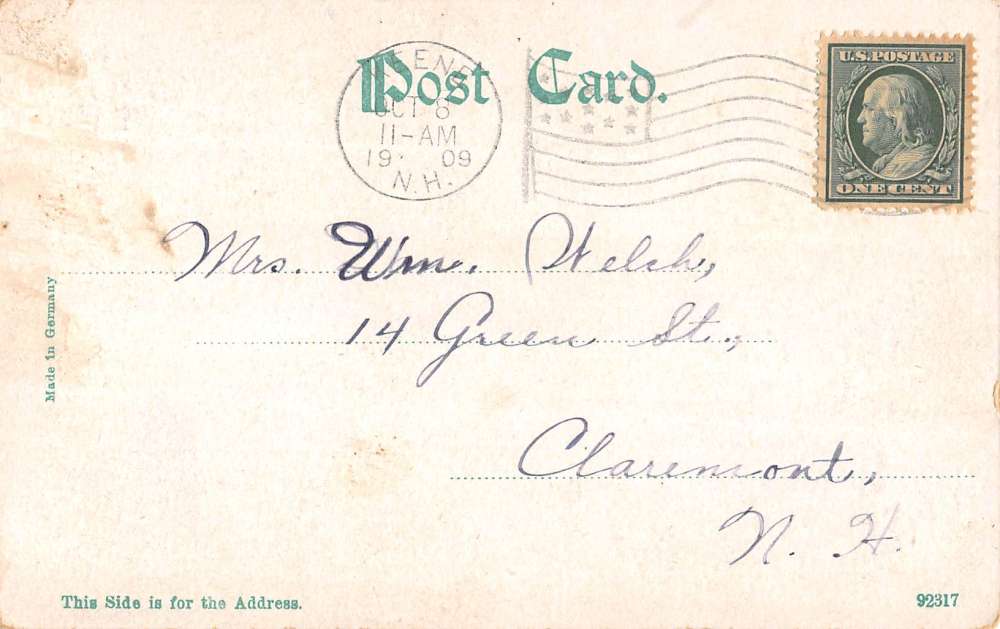 Post Card.
KEENE
OCT 8
11-AM
19 09
N.H.
U.S. POSTAGE
ONE CENT
Mrs. Wm. Welsh,
14 Green St.,
Claremont,
N. H.
Made in Germany
This Side is for the Address.
92317